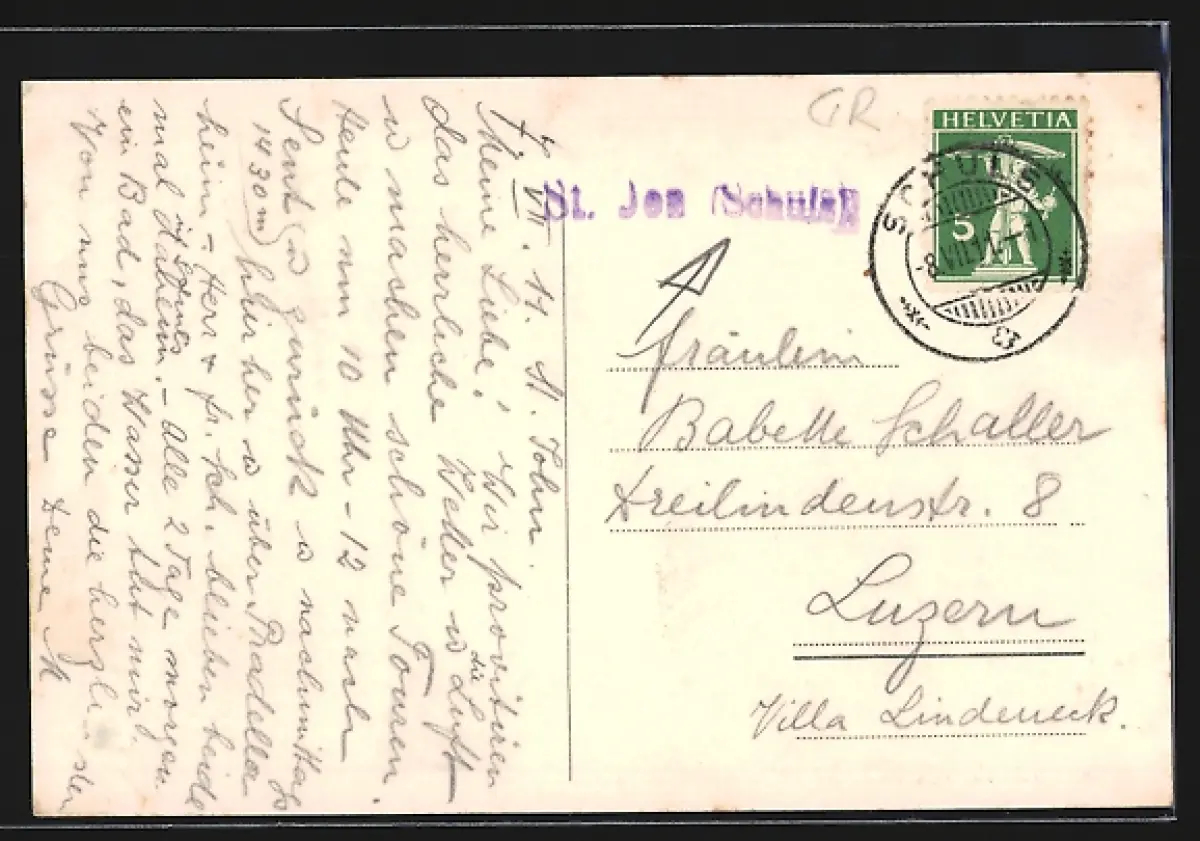 4. VII. 11. St. John.
Meine Liebe! Wir profitieren
das herrliche Wetter u die Luft
u machen schöne Touren.
Heute um 10 Uhr - 12 nach
Sent u zurück u nachmittags
1430 m hieher u über Pradella
heim - Herr & Fr. Sch. blieben beide
mal daheim. - Alle 2 Tage morgen
ein Bad, das Wasser tut mir
Von uns beiden die herzlichsten
Grüsse Deine M
GR
HELVETIA
5
SCHULS
St. Jon (Schuls)
Fräulein
Babette Schaller
Dreilindenstr. 8
Luzern
Villa Lindeneck.